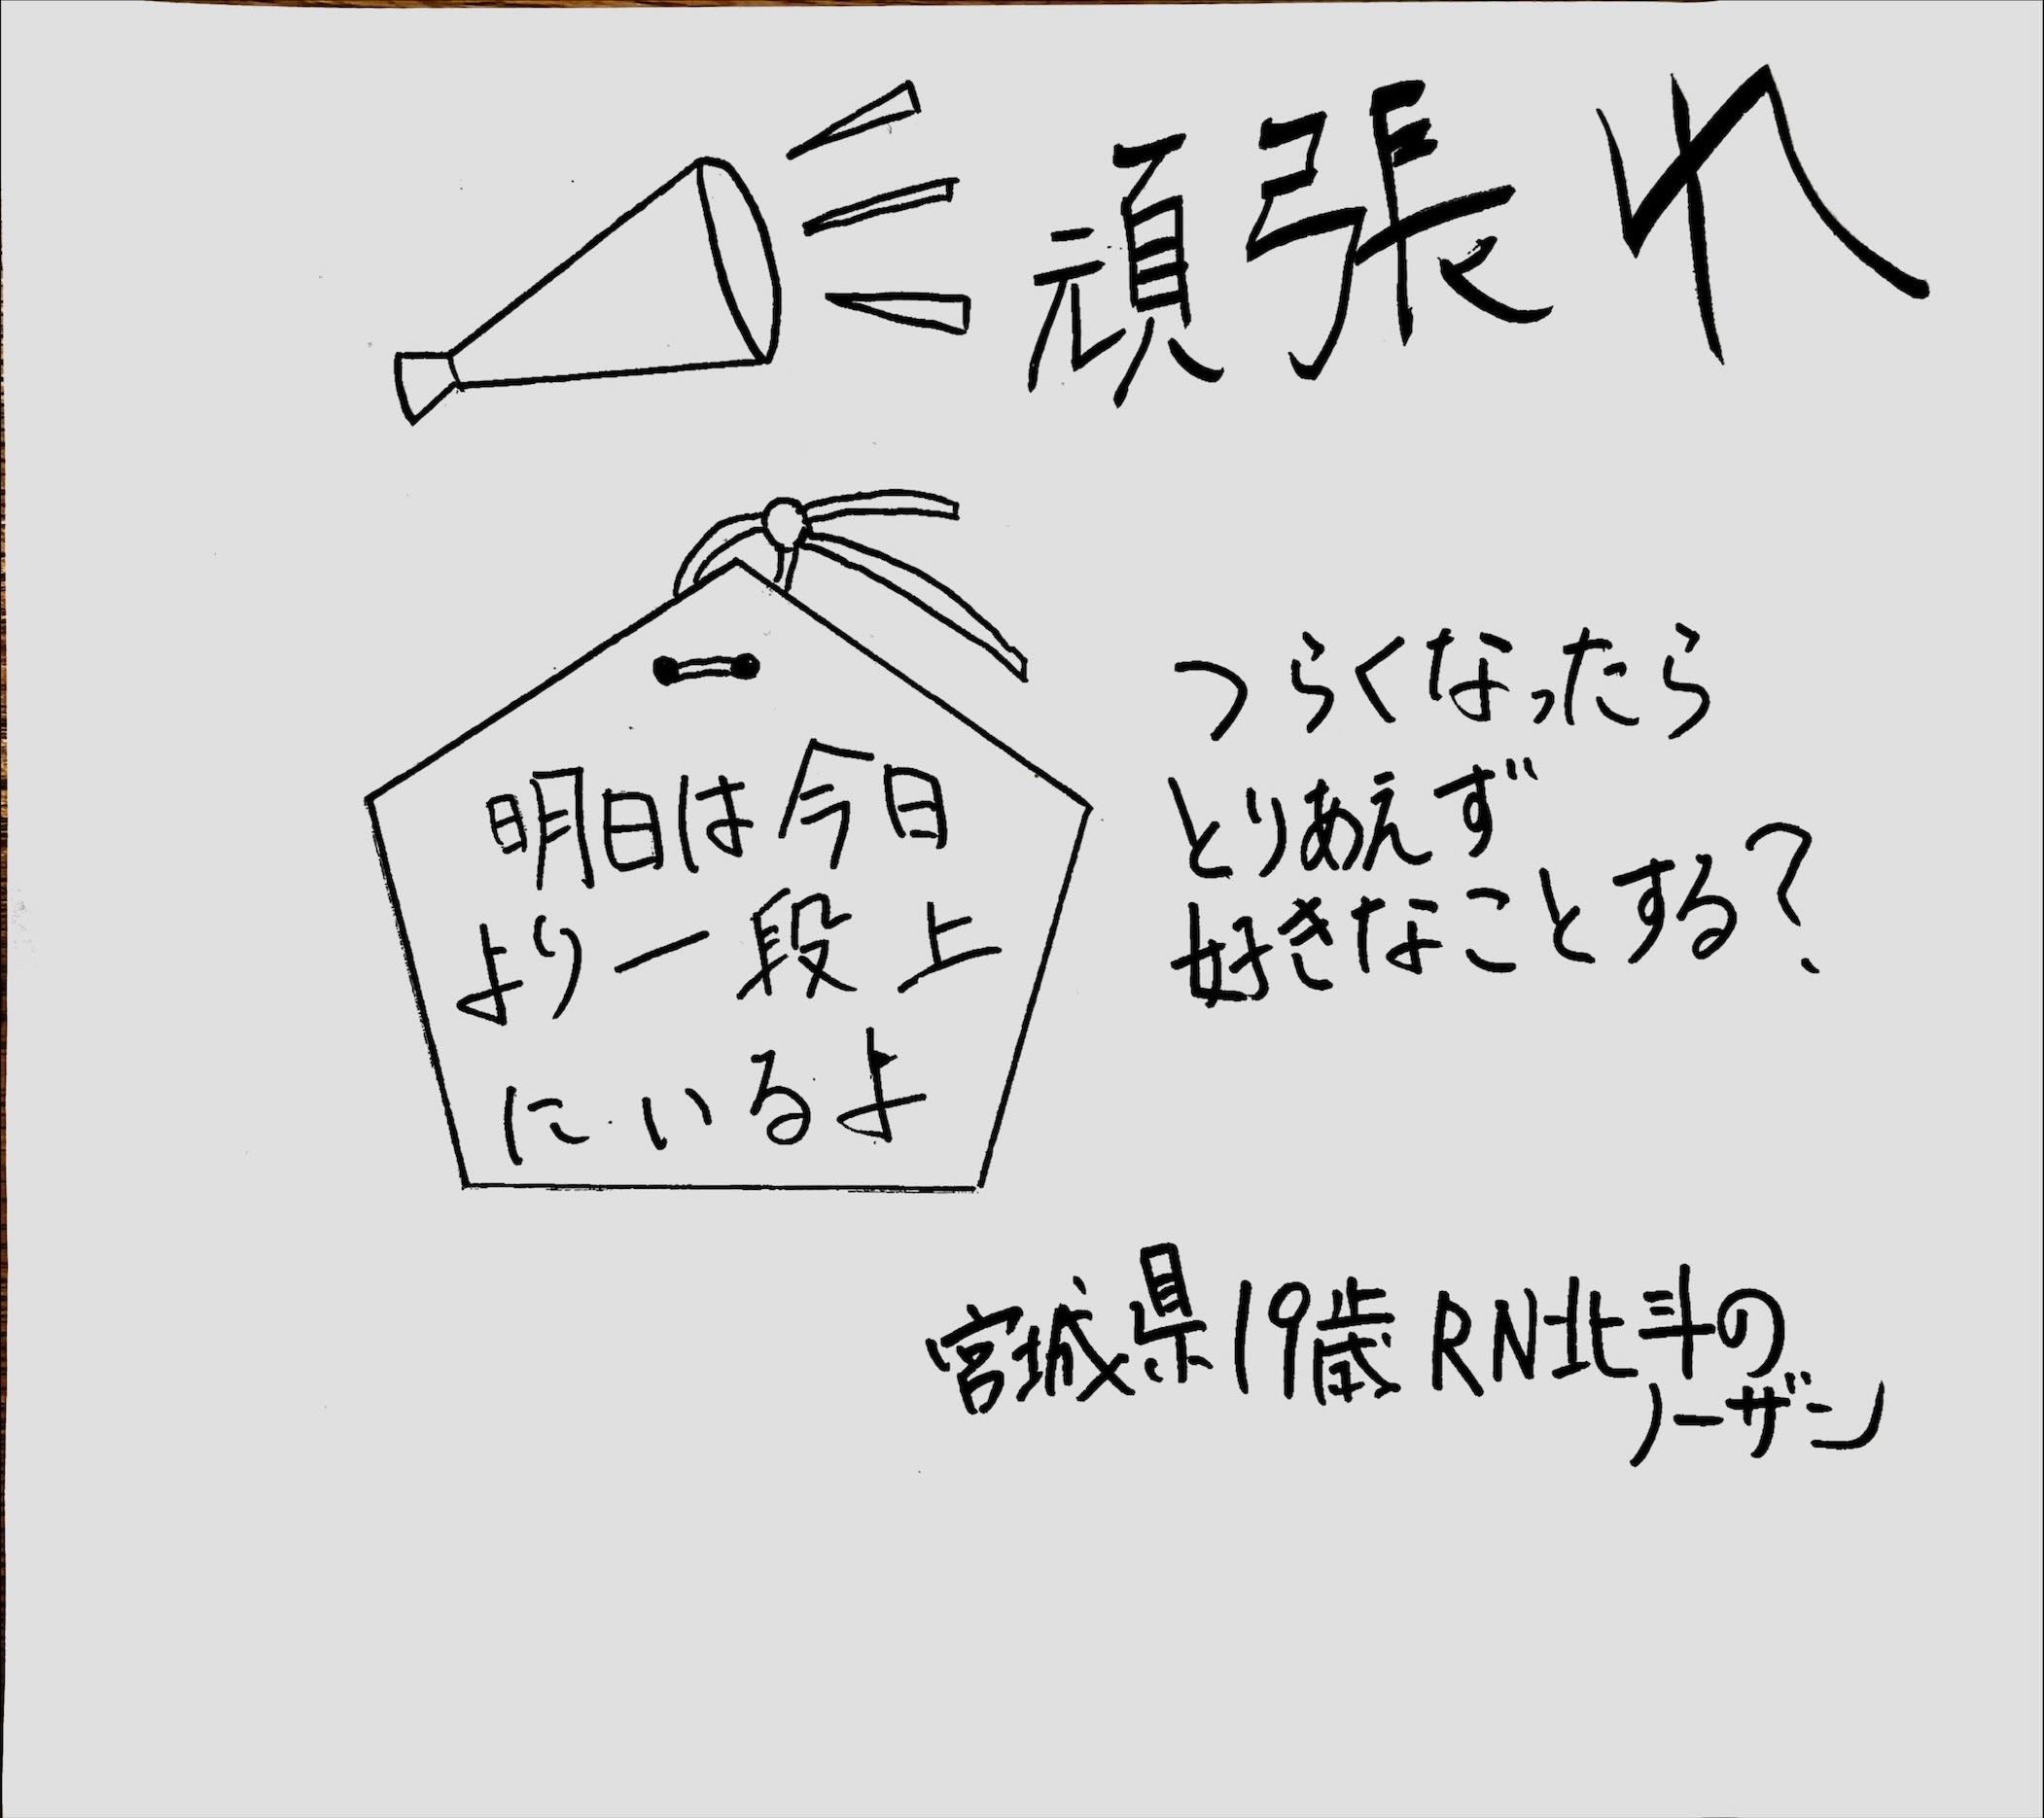 頑張れ
明日は今日
より一段上
にいるよ
つらくなったら
とりあえず
好きなことする?
宮城県19歳 RN北斗の
ノーザン